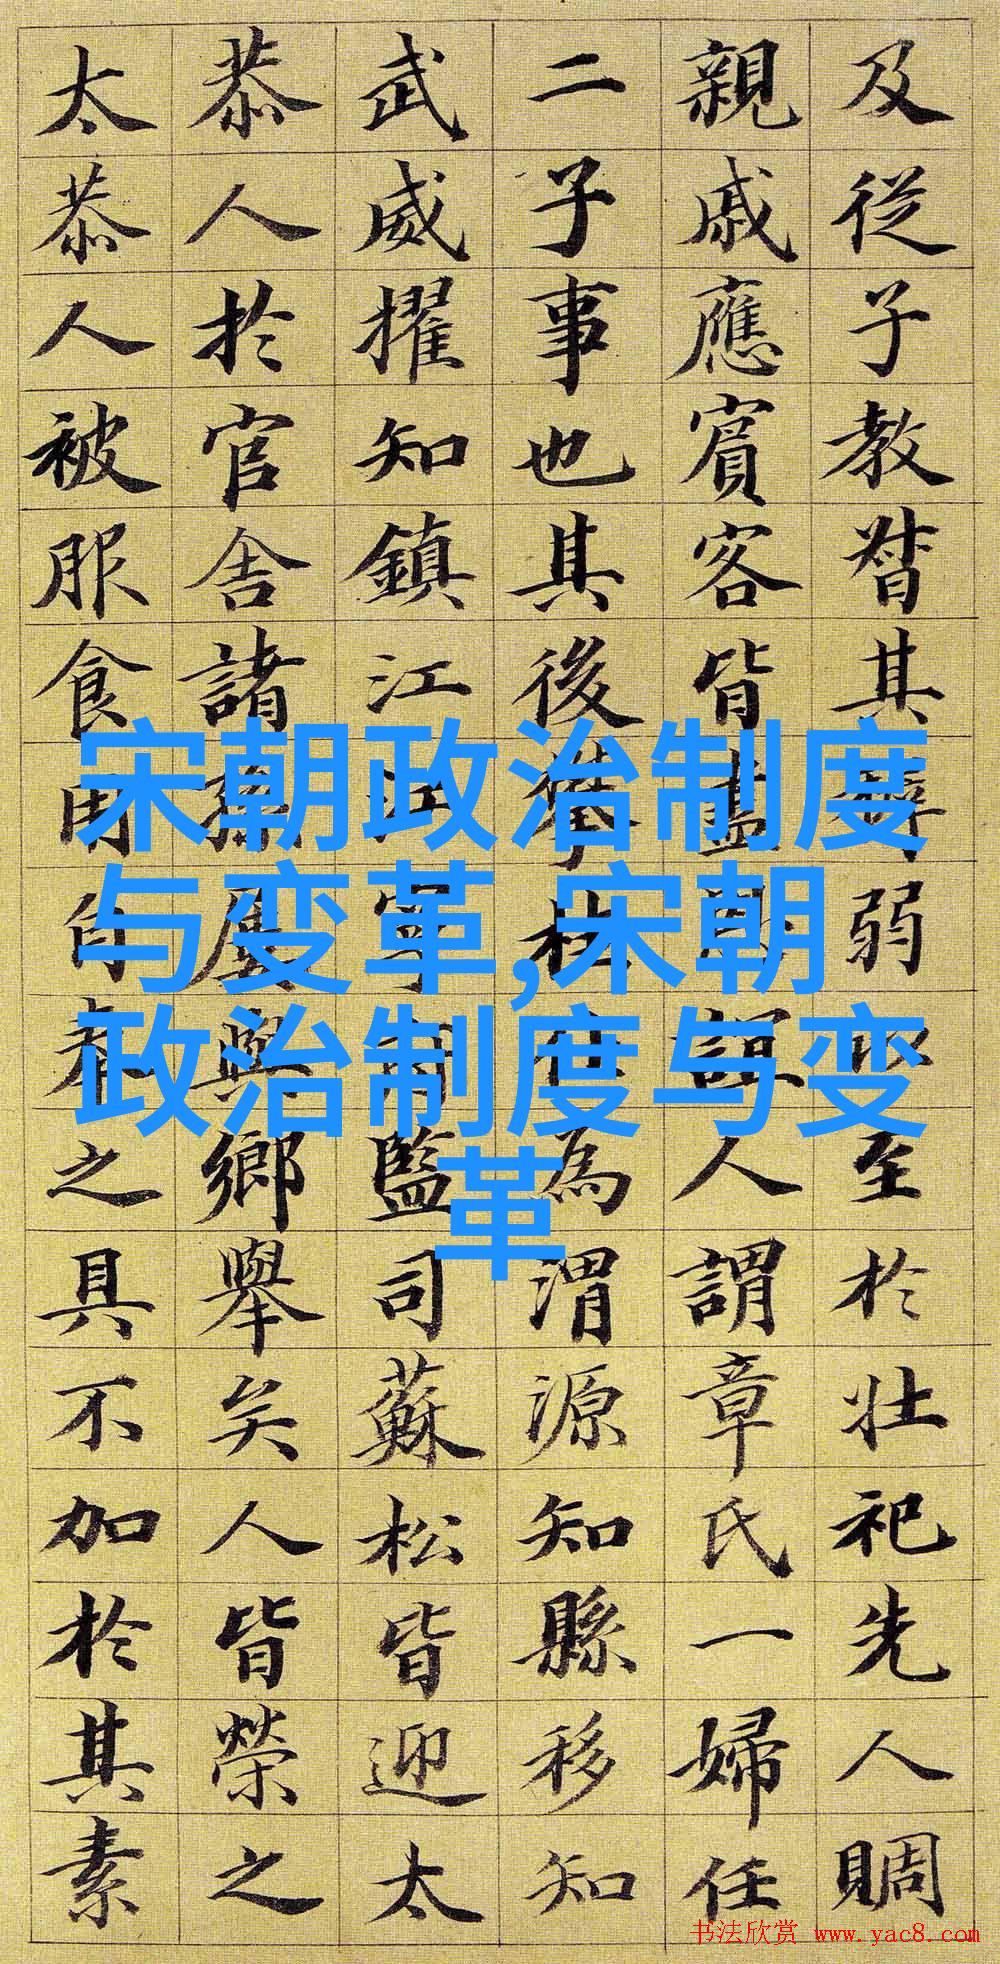 及從子教督其弱至於壯祀先人賙
親戚應賓客皆盡誼人謂章氏一婦任
二子事也其後為渭源知縣移知
武威擢知鎮江江寧府監司蘇松皆迎太
恭人於官舍諸孫屢與鄉舉矣人皆榮之
太恭人被服食用自奉之具不加於其素
宋朝政治制度
与变革,宋朝
政治制度与变
革
书法欣赏 www.yac8.com